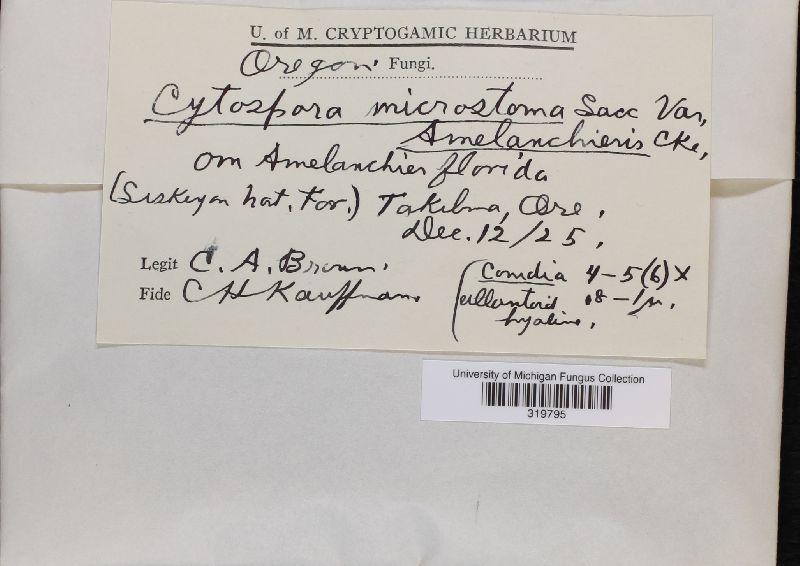 U. of M. CRYPTOGAMIC HERBARIUM
Oregon Fungi.
Cytospora microstoma Sacc Var,
Amelanchieris Cke,
on Amelanchier florida
(Siskeyon Nat. For.) Takilma, Ore,
Dec. 12/25,
Legit C. A. Brown,
Fide C H Kauffman.
(Conidia 4-5(6) X
allantoid .8-1µ.
hyaline,
University of Michigan Fungus Collection
319795